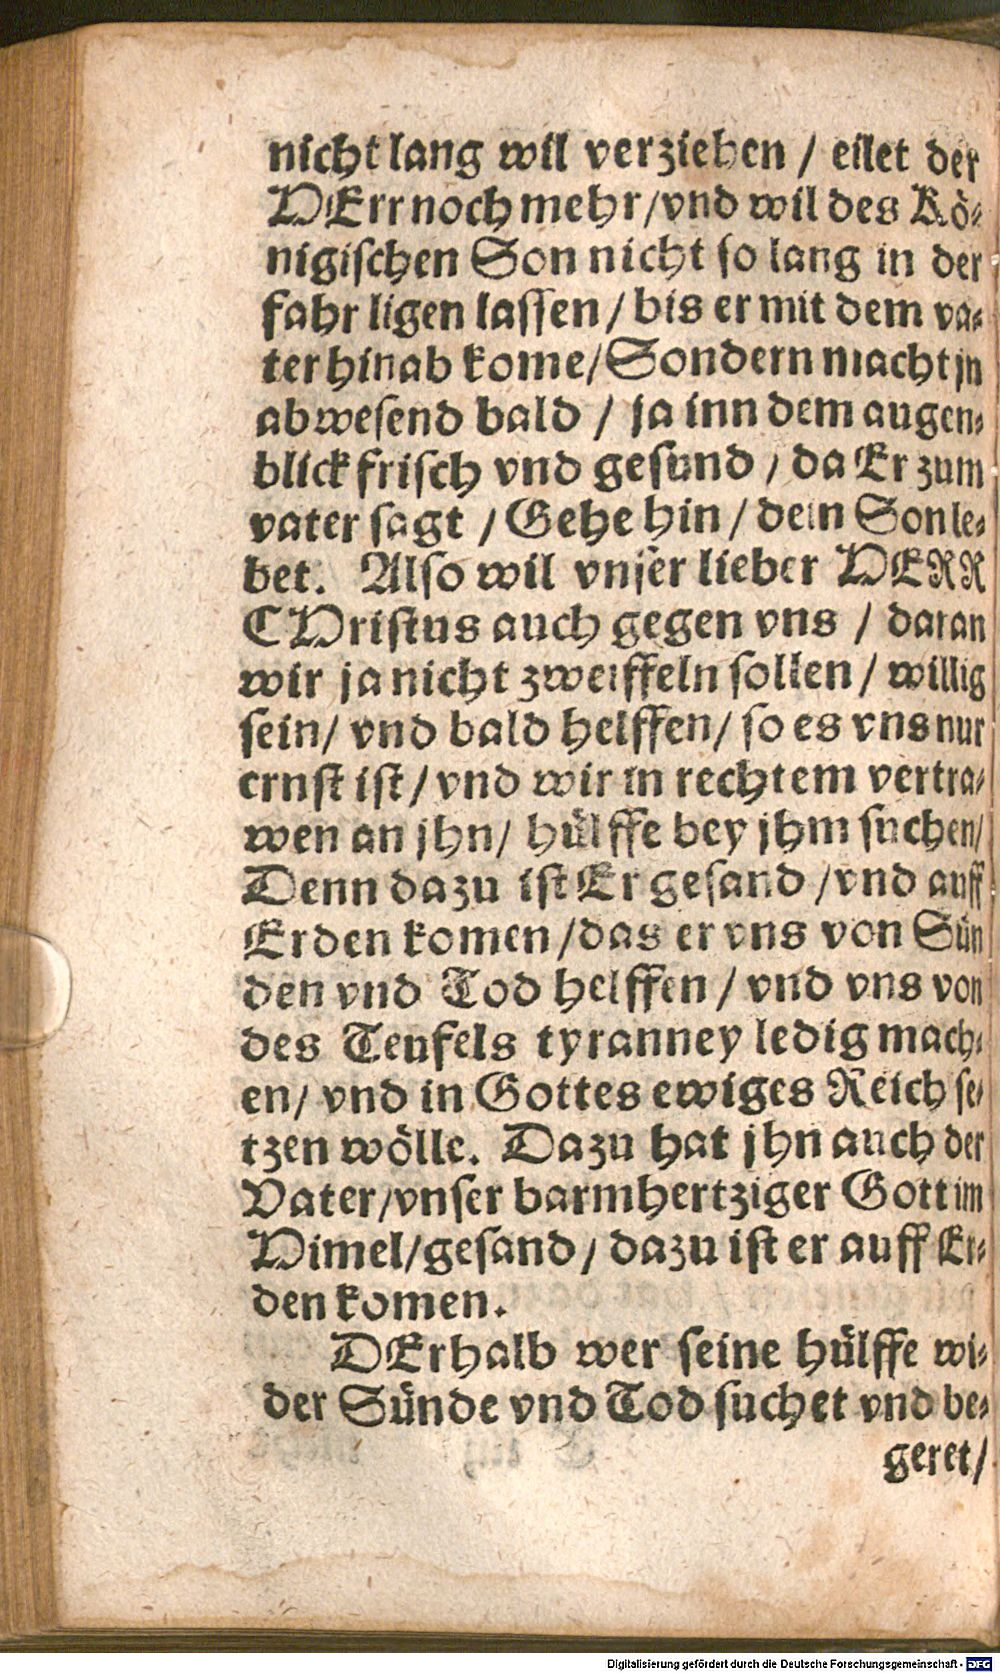 nicht lang wil verziehen / eilet der
HErr noch mehr / vnd wil des Kö⸗
nigischen Son nicht so lang in der
fahr ligen lassen / bis er mit dem va⸗
ter hinab kome / Sondern macht jn
abwesend bald / ja inn dem augen⸗
blick frisch vnd gesund / da Er zum
vater sagt / Gehe hin / dein Son le⸗
bet. Also wil vnser lieber HERR
CHristus auch gegen vns / daran
wir ja nicht zweiffeln sollen / willig
sein / vnd bald helffen / so es vns nur
ernst ist / vnd wir in rechtem vertra⸗
wen an jhn / hülffe bey jhm suchen /
Denn dazu ist Er gesand / vnd auff
Erden komen / das er vns von Sün
den vnd Tod helffen / vnd vns von
des Teufels tyranney ledig mach⸗
en / vnd in Gottes ewiges Reich se⸗
tzen wölle. Dazu hat jhn auch der
Vater / vnser barmhertziger Gott im
Himel / gesand / dazu ist er auff Er⸗
den komen.
DErhalb wer seine hülffe wi⸗
der Sünde vnd Tod suchet vnd be⸗
geret /
Digitalisierung gefördert durch die Deutsche Forschungsgemeinschaft - DFG